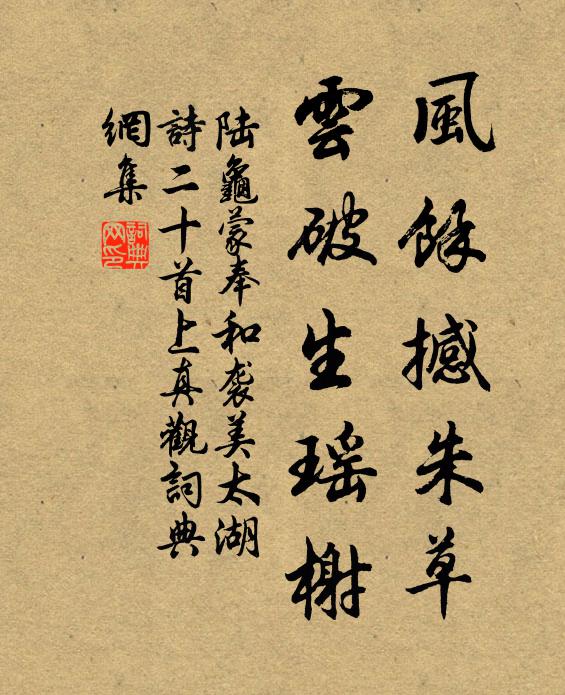 風餘撼朱草
雲破生瑤榭
陸龜蒙奉和袭美太湖
詩二十首上真觀詞典
網集
詞典
网印